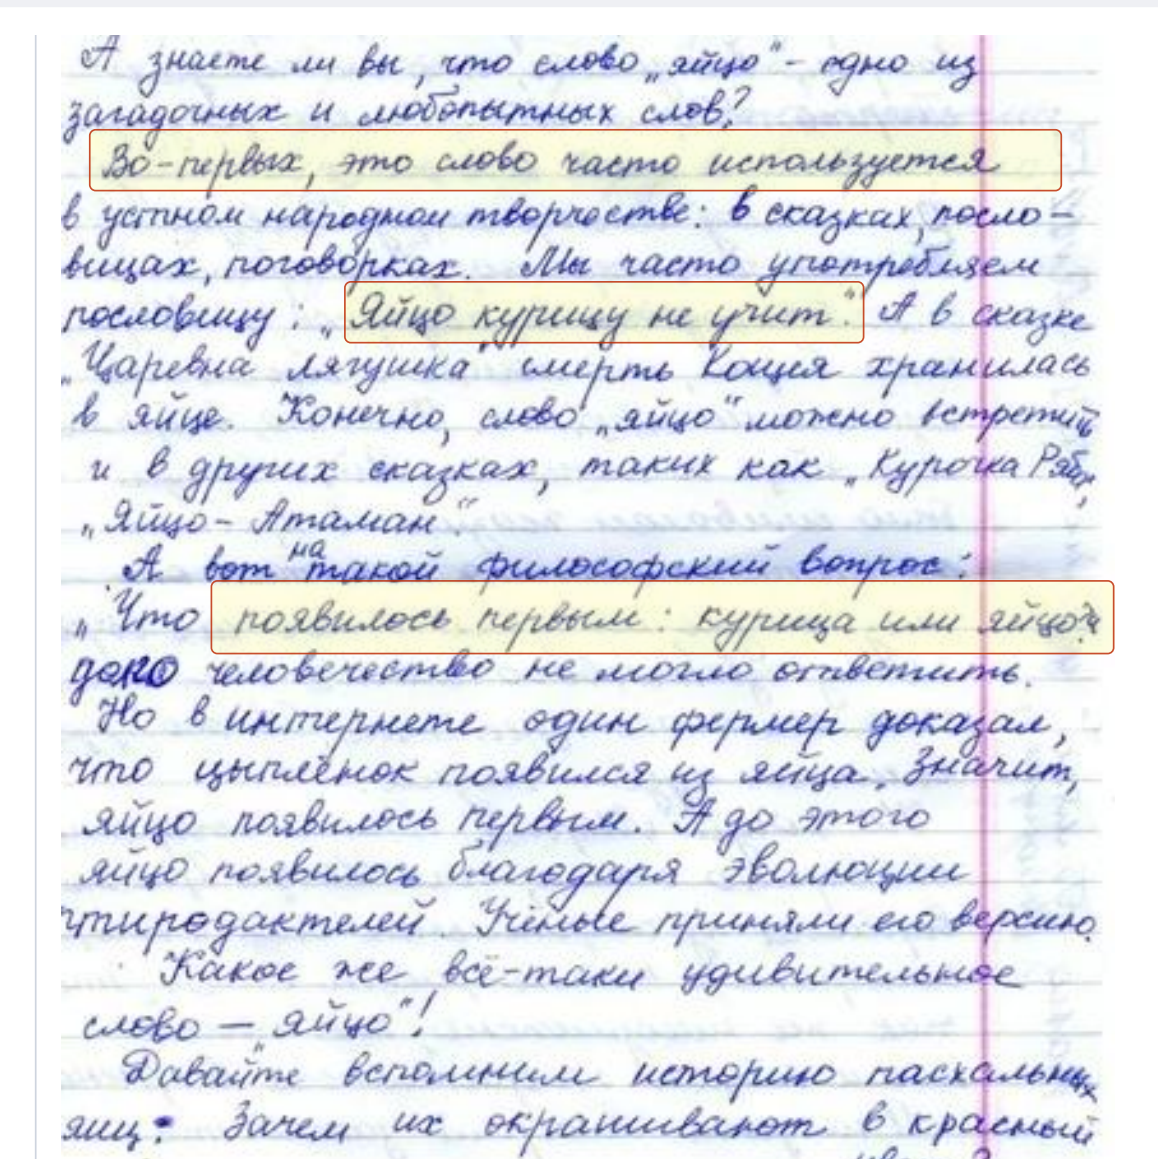 А знаете ли вы, что слово „яйцо“ - одно из
загадочных и любопытных слов?
Во-первых, это слово часто используется
в устном народном творчестве: в сказках, посло-
вицах, поговорках. Мы часто употребляем
пословицу: „Яйцо курицу не учит“. А в сказке
„Царевна лягушка“ смерть Кощея хранилась
в яйце. Конечно, слово „яйцо“ можно встретить
и в других сказках, таких как „Курочка Ряба“,
„Яйцо - Атаман“.
А вот на такой философский вопрос:
„Что появилось первым: курица или яйцо?“
долго человечество не могло ответить.
Но в интернете один фермер доказал,
что цыплёнок появился из яйца. Значит,
яйцо появилось первым. А до этого
яйцо появилось благодаря эволюции
птиродактелей. Учёные приняли его версию.
Какое же всё-таки удивительное
слово — „яйцо“!
Давайте вспомним историю пасхальных
яиц. Зачем их окрашивают в красный